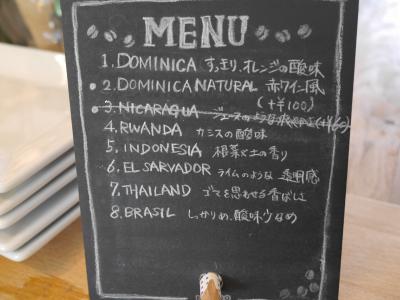 MENU
1. DOMINICA すっきり、オレンジの酸味
2. DOMINICA NATURAL 赤ワイン風
(+¥100)
3. NICARAGUA ジュースのような
4. RWANDA カシスの酸味
5. INDONESIA 根菜や土の香り
6. EL SARVADOR ライムのような 透明感
7. THAILAND ゴマを思わせる香ばしさ
8. BRASIL しっかりめ、酸味少なめ